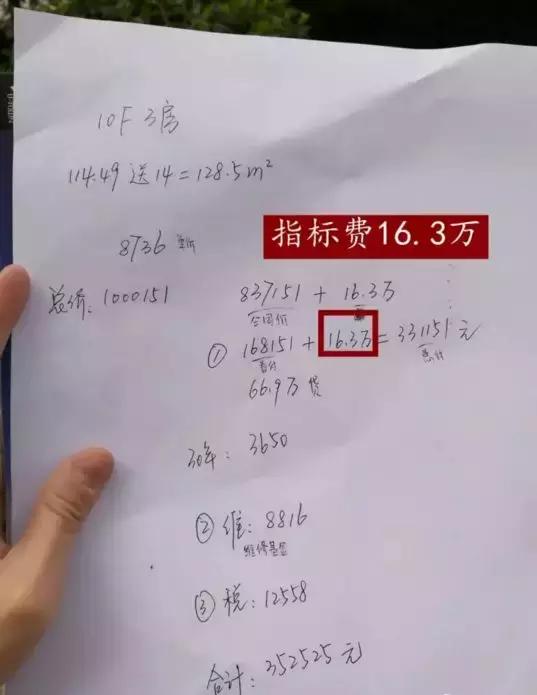 10F 3房
114.49 送14=128.5m²
8736 单价
指标费16.3万
总价:1000151
837151 + 16.3万
合同价
① 168151 + 16.3万 = 331151元
首付
总付
66.9万 贷
30年: 3650
② 维: 8816
维修基金
③ 税: 12558
合计: 352525 元